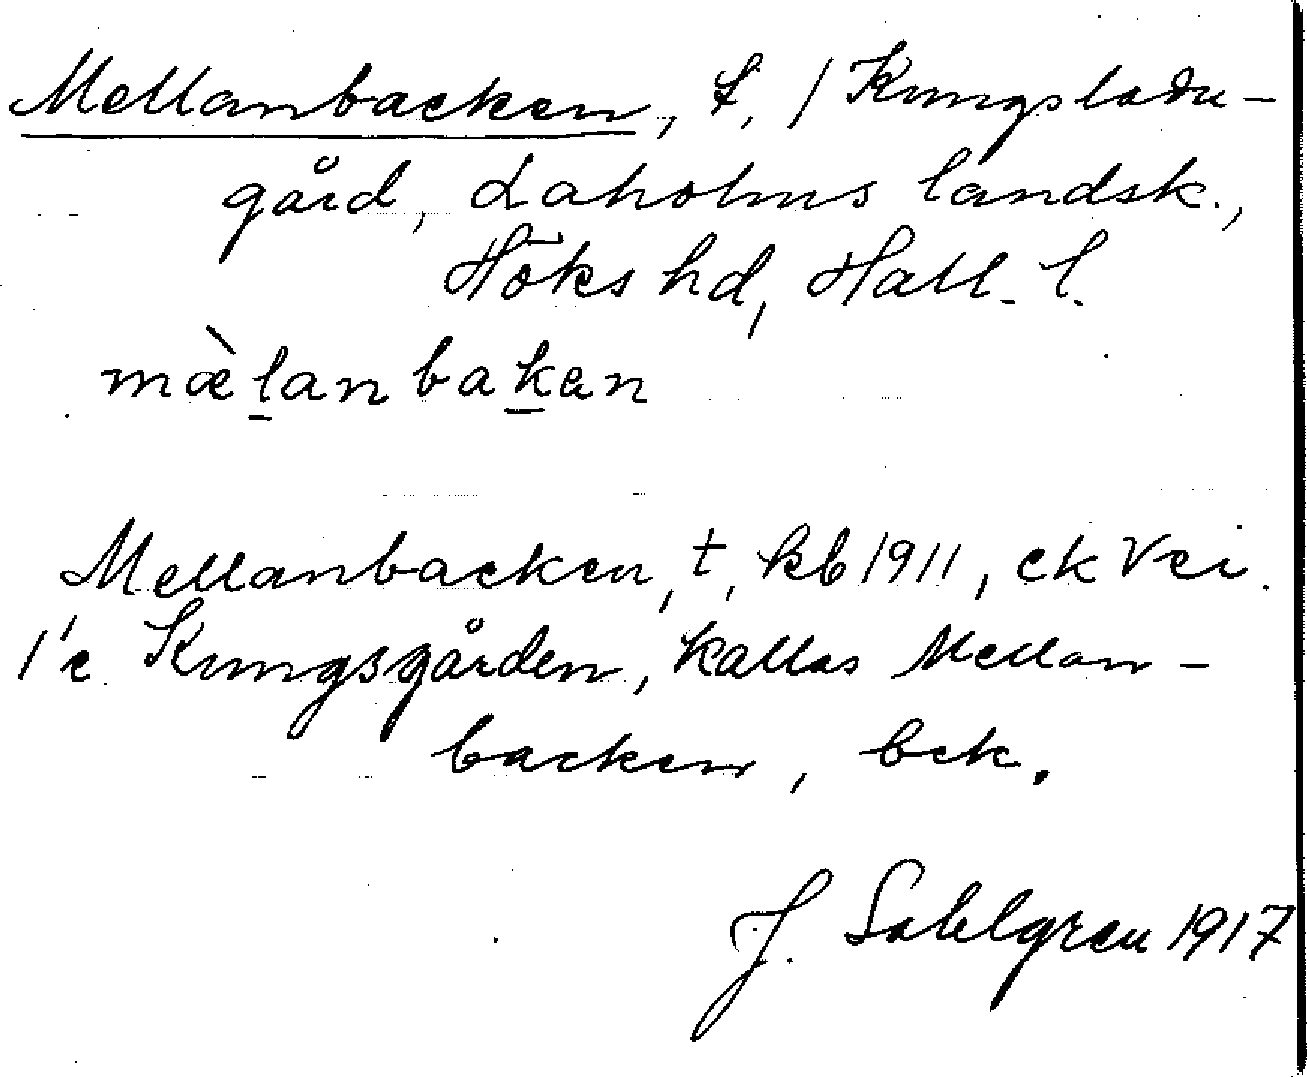 Mellanbacken, t, / Kungsladu-
gård, Laholms landsk.,
Höks hd, Hall. l.
mæ̀lanbakan
Mellanbacken, t, kb 1911, ek Vei.
1/2 Kungsgården, kallas Mellan-
backen, bek.
J. Sahlgren 1917